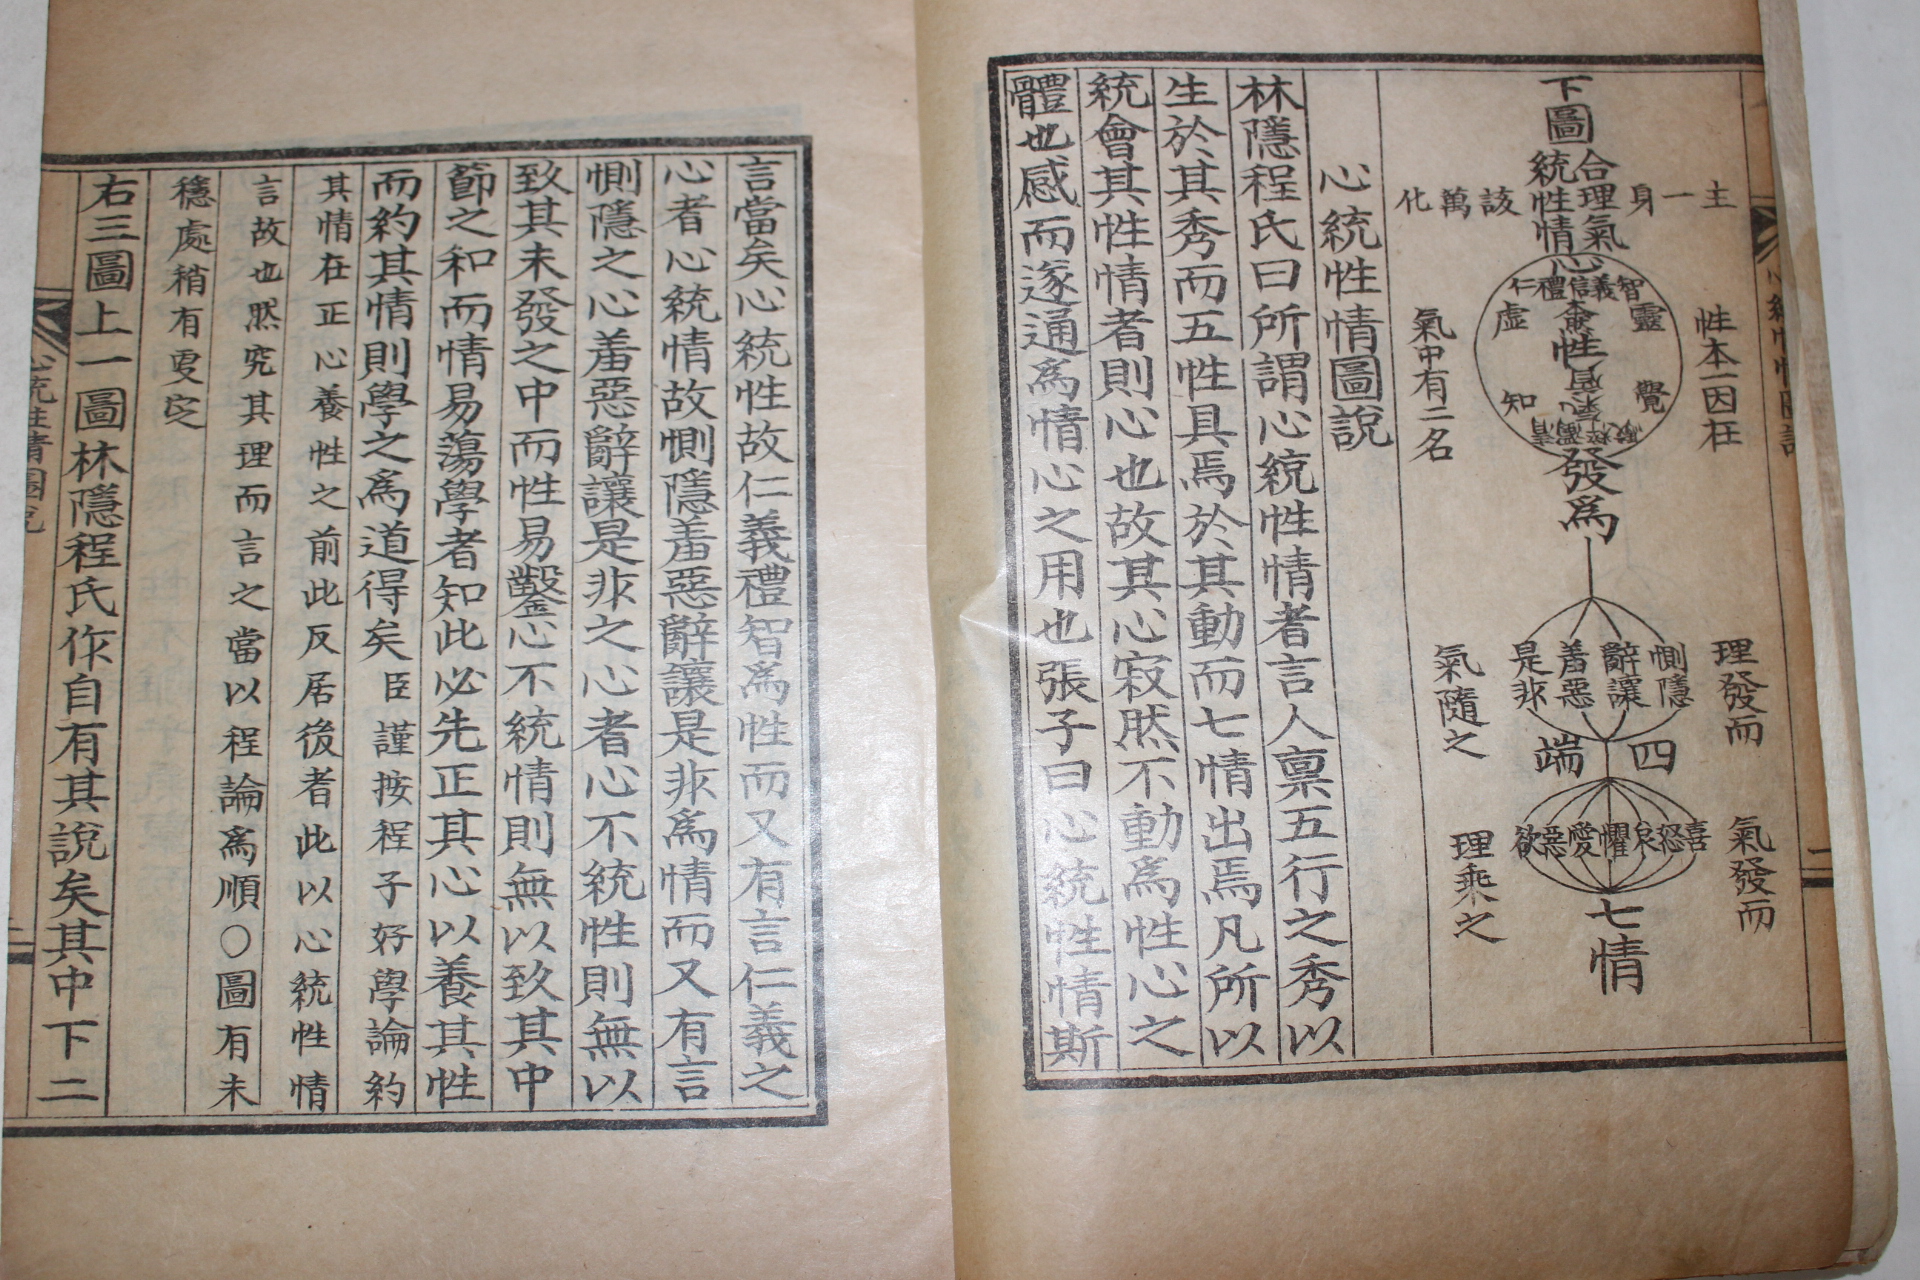 下圖
合理氣
統性情
主一身
該萬化
心
仁禮信義智
虛靈
知覺
性
發爲
性本一因在
氣中有二名
惻隱
辭讓
羞惡
是非
四端
理發而
氣隨之
喜怒哀懼愛惡欲
七情
氣發而
理乘之
心統性情圖說
林隱程氏曰所謂心統性情者言人稟五行之秀以
生於其秀而五性具焉於其動而七情出焉凡所以
統會其性情者則心也故其心寂然不動爲性心之
體也感而遂通爲情心之用也張子曰心統性情斯
言當矣心統性故仁義禮智爲性而又有言仁義之
心者心統情故惻隱羞惡辭讓是非爲情而又有言
惻隱之心羞惡辭讓是非之心者心不統性則無以
致其未發之中而性易鑿心不統情則無以致其中
節之和而情易蕩學者知此必先正其心以養其性
而約其情則學之爲道得矣臣謹按程子好學論約
其情在正心養性之前此反居後者此以心統性情
言故也然究其理而言之當以程論爲順〇圖有未
穩處稍有更定
右三圖上一圖林隱程氏作自有其說矣其中下二
心統性情圖說
二